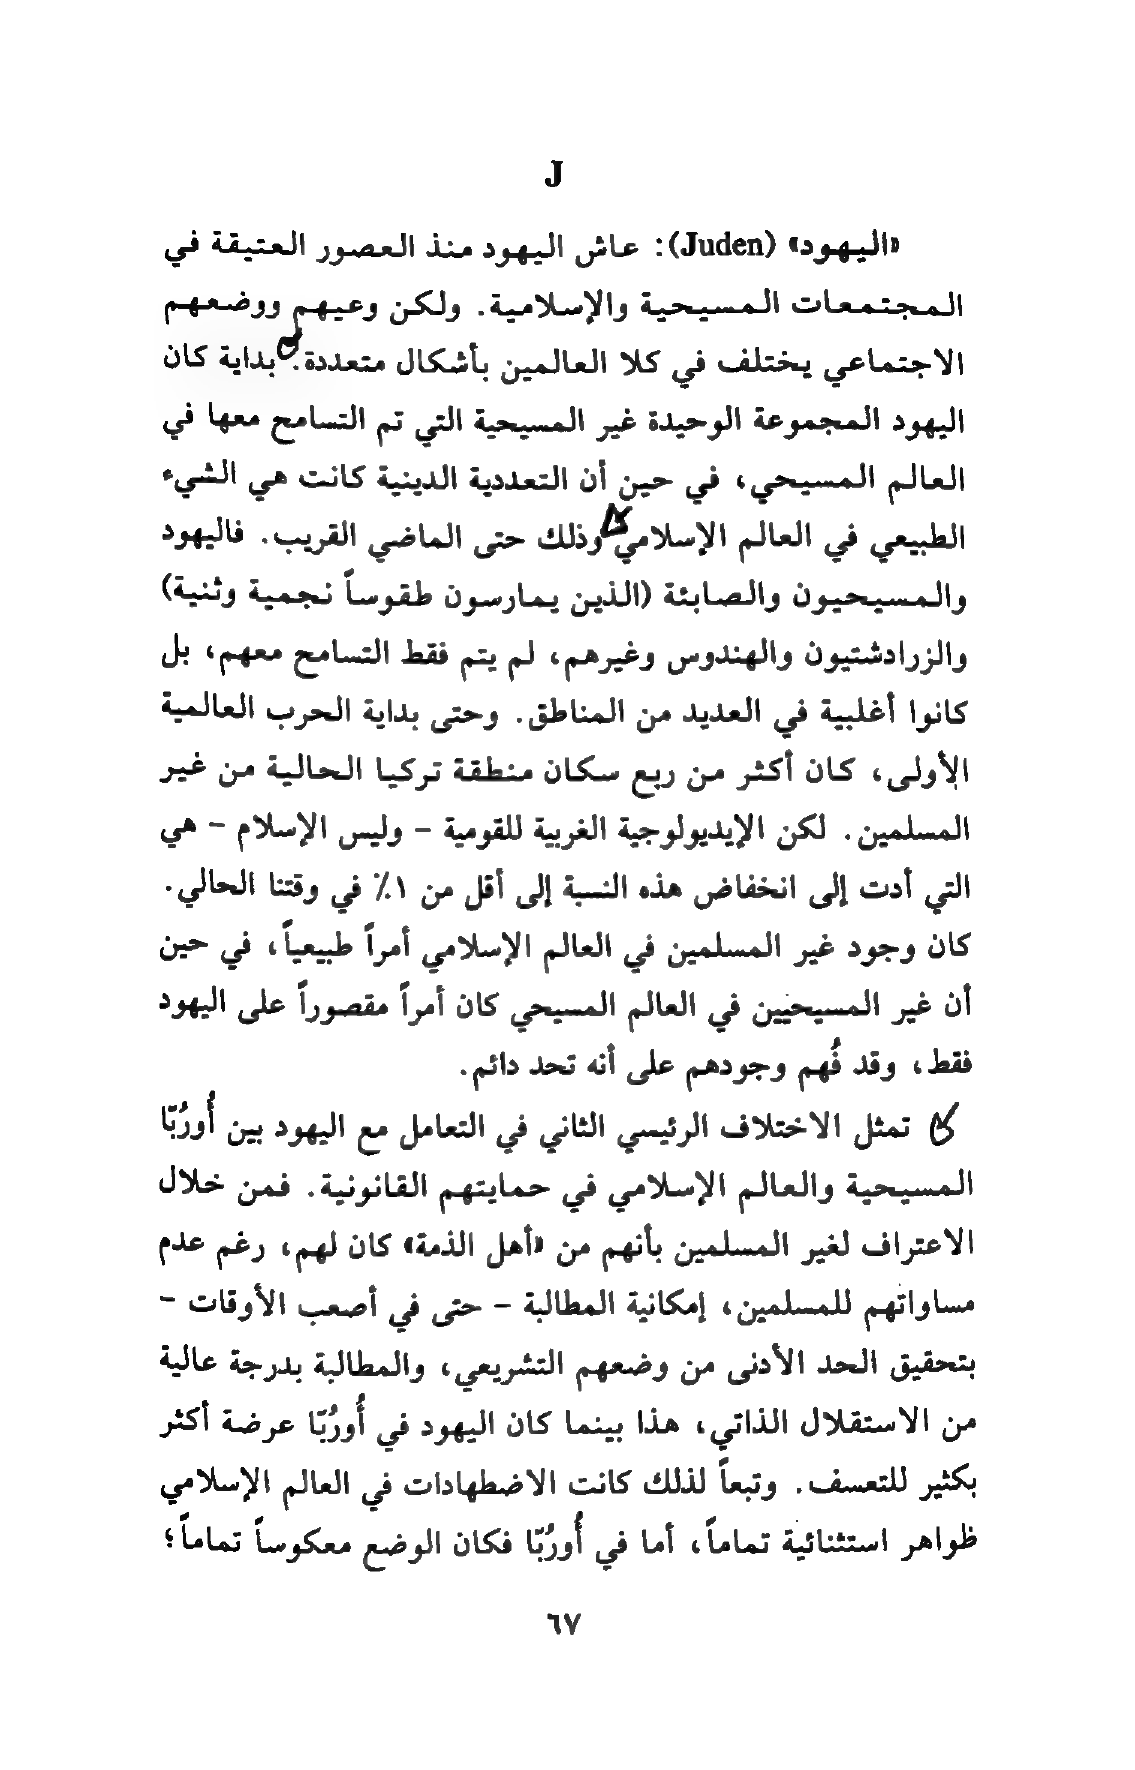 J
«اليهود» (Juden): عاش اليهود منذ العصور العتيقة في
المجتمعات المسيحية والإسلامية. ولكن وعيهم ووضعهم
الاجتماعي يختلف في كلا العالمين بأشكال متعددة. بداية كان
اليهود المجموعة الوحيدة غير المسيحية التي تم التسامح معها في
العالم المسيحي، في حين أن التعددية الدينية كانت هي الشيء
الطبيعي في العالم الإسلامي وذلك حتى الماضي القريب. فاليهود
والمسيحيون والصابئة (الذين يمارسون طقوساً نجمية وثنية)
والزرادشتيون والهندوس وغيرهم، لم يتم فقط التسامح معهم، بل
كانوا أغلبية في العديد من المناطق. وحتى بداية الحرب العالمية
الأولى، كان أكثر من ربع سكان منطقة تركيا الحالية من غير
المسلمين. لكن الإيديولوجية الغربية للقومية - وليس الإسلام - هي
التي أدت إلى انخفاض هذه النسبة إلى أقل من ١٪ في وقتنا الحالي.
كان وجود غير المسلمين في العالم الإسلامي أمراً طبيعياً، في حين
أن غير المسيحيين في العالم المسيحي كان أمراً مقصوراً على اليهود
فقط، وقد فُهم وجودهم على أنه تحد دائم.
تمثل الاختلاف الرئيسي الثاني في التعامل مع اليهود بين أُورُبّا
المسيحية والعالم الإسلامي في حمايتهم القانونية. فمن خلال
الاعتراف لغير المسلمين بأنهم من «أهل الذمة» كان لهم، رغم عدم
مساواتهم للمسلمين، إمكانية المطالبة - حتى في أصعب الأوقات -
بتحقيق الحد الأدنى من وضعهم التشريعي، والمطالبة بدرجة عالية
من الاستقلال الذاتي، هذا بينما كان اليهود في أُورُبّا عرضة أكثر
بكثير للتعسف. وتبعاً لذلك كانت الاضطهادات في العالم الإسلامي
ظواهر استثنائية تماماً، أما في أُورُبّا فكان الوضع معكوساً تماماً؛
٦٧